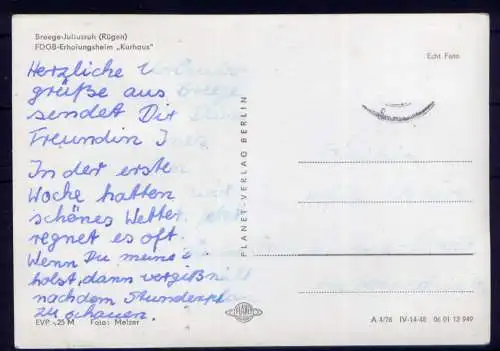 Breege-Juliusruh (Rügen)
FDGB-Erholungsheim „Kurhaus"
Echt Foto
Herzliche
grüße aus Breege
sendet Dir
Freundin
In der ersten
Woche hatten
schönes Wetter,
regnet es oft.
Wenn Du meine
holst, dann vergiß
nach dem Stundenplan
zu schauen.
PLANET-VERLAG BERLIN
PLANET
EVP -,25 M Foto: Melzer
A 4/76 IV-14-48 06 01 12 949